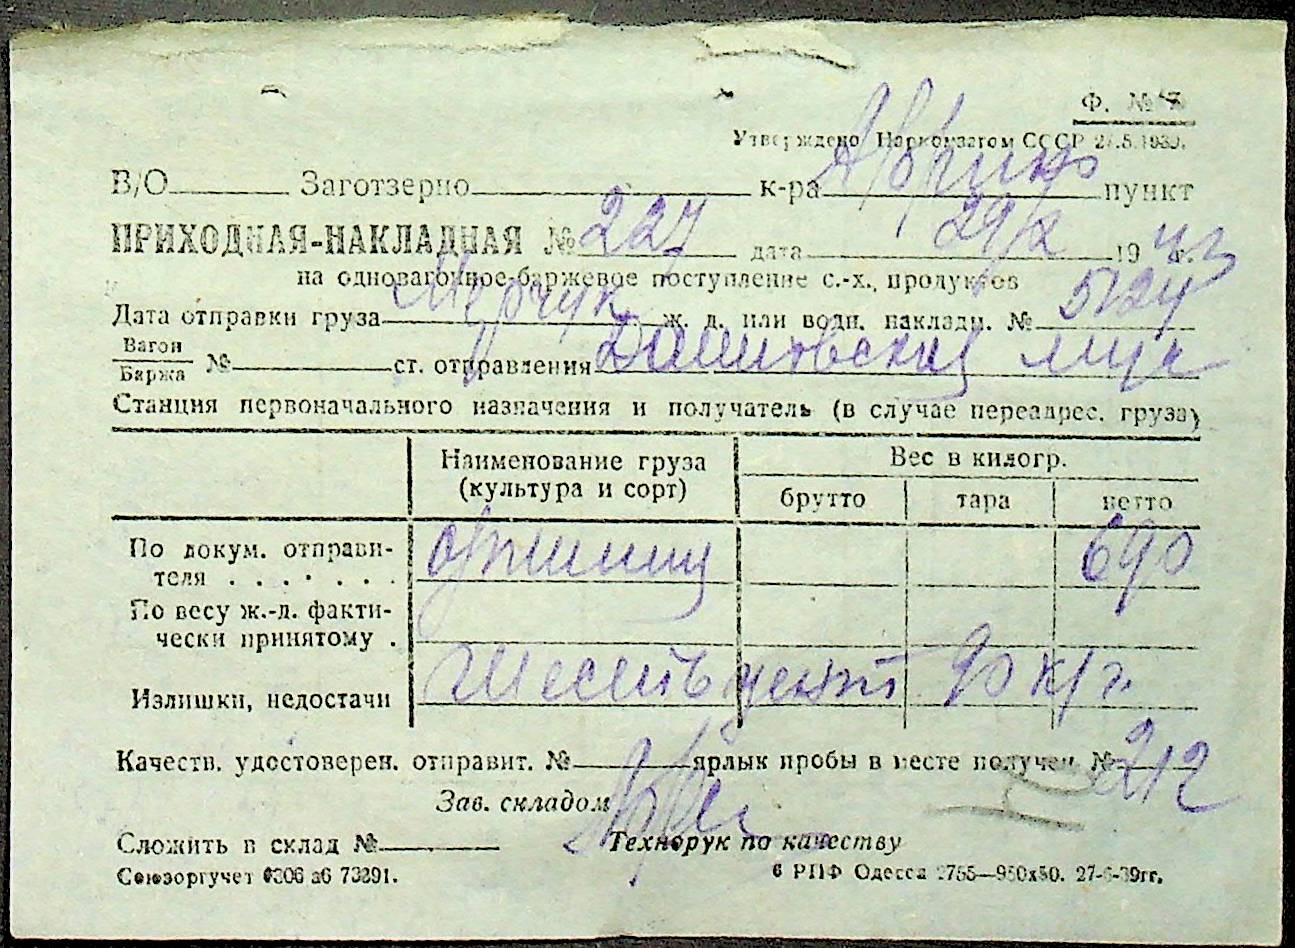 Ф. №
Утверждено Наркомзагом СССР 27.5.1939.
В/О Заготзерно к-ра пункт
ПРИХОДНАЯ-НАКЛАДНАЯ № 227 дата 29/X 1943 г.
на одновагонное-баржевое поступление с.-х. продуктов
Дата отправки груза ж. д. или водн. накладн. № 5124
Вагон
Баржа № ст. отправления
Станция первоначального назначения и получатель (в случае переадрес. груза)
Наименование груза Вес в килогр.
(культура и сорт) брутто тара нетто
По докум. отправи-
теля . . . . . . . 690
По весу ж.-д. факти-
чески принятому .
Излишки, недостачи Шесть цент 90 кг.
Качеств. удостоверен. отправит. № ярлык пробы в месте получен. № 212
Зав. складом
Сложить в склад № Технорук по качеству
Союзоргучет 6306 аб 73291. 6 РПФ Одесса 2755—950х50. 27-6-39гг.